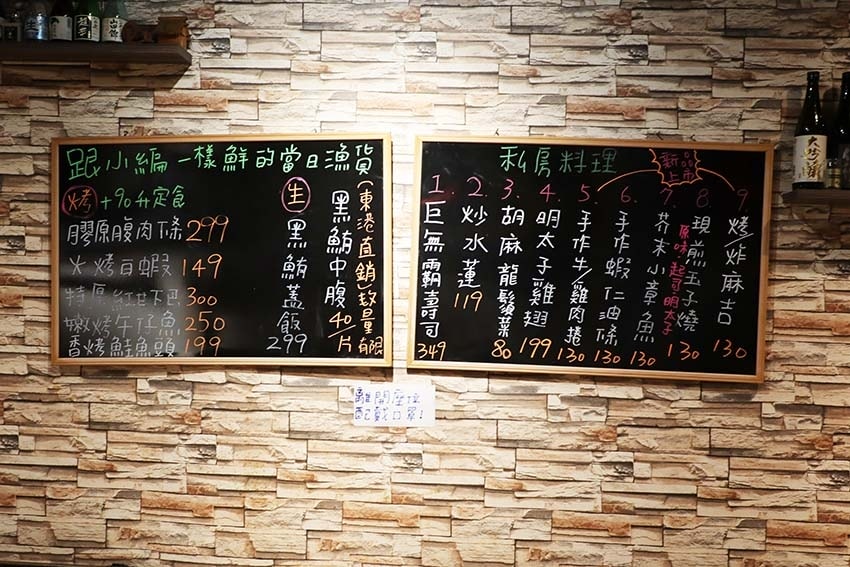 跟小編一樣鮮的當日漁貨
烤 +90升定食
膠原腹肉條 299
火烤白蝦 149
特原紅甘下巴 300
嫩烤午仔魚 250
香烤鮭魚頭 199
生
黑鮪蓋飯 299
黑鮪中腹 40/片
(東港直銷)數量有限
私房料理
新品上市
1. 巨無霸壽司 349
2. 炒水蓮 119
3. 胡麻龍鬚菜 80
4. 明太子雞翅 199
5. 手作牛/雞肉捲 130
6. 手作蝦仁油條 130
7. 芥末小章魚 130
8. 現煎玉子燒 130
原味.起司.明太子
9. 烤/炸麻吉 130
離開座位
配戴口罩!